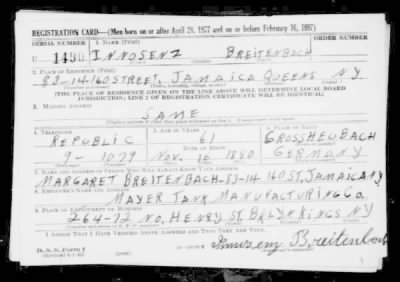 REGISTRATION CARD—(Men born on or after April 28, 1877 and on or before February 16, 1897)
SERIAL NUMBER 1. NAME (Print) ORDER NUMBER
U 1490 INNOSENZ BREITENBACH
(First) (Middle) (Last)
2. PLACE OF RESIDENCE (Print)
83-14-160 STREET, JAMAICA QUEENS N.Y.
(Number and street) (Town, township, village, or city) (County) (State)
[THE PLACE OF RESIDENCE GIVEN ON THE LINE ABOVE WILL DETERMINE LOCAL BOARD
JURISDICTION; LINE 2 OF REGISTRATION CERTIFICATE WILL BE IDENTICAL]
3. MAILING ADDRESS
SAME
4. TELEPHONE 5. AGE IN YEARS 6. PLACE OF BIRTH
REPUBLIC 61 GROSSHEUBACH
DATE OF BIRTH
9-1079 NOV. 1880 GERMANY
7. NAME AND ADDRESS OF PERSON WHO WILL ALWAYS KNOW YOUR ADDRESS
MARGARET BREITENBACH-83-14 160 ST. JAMAICA NY
8. EMPLOYER'S NAME AND ADDRESS
MAYER TANK MANUFACTURING CO.
9. PLACE OF EMPLOYMENT OR BUSINESS
264-72 NO. HENRY ST. BKLYN KINGS NY
I AFFIRM THAT I HAVE VERIFIED ABOVE ANSWERS AND THAT THEY ARE TRUE.
D. S. S. Form 1
Innosenz Breitenbach